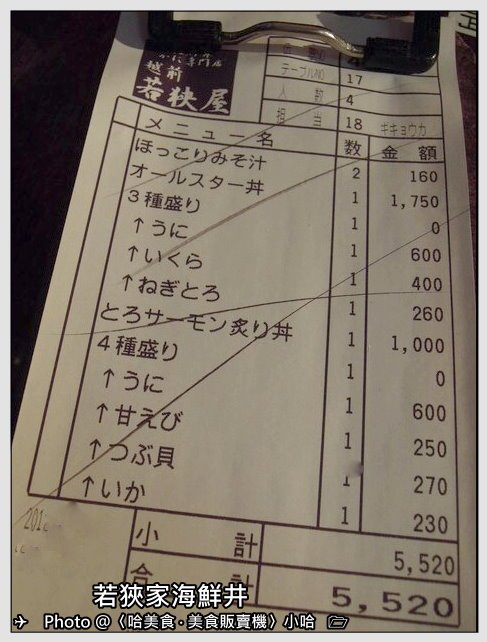 専門店
越前
若狭屋
テーブルNO 17
人数 4
担当 18 キキョウカ
メニュー名 数 金額
ほっこりみそ汁 2 160
オールスター丼 1 1,750
3種盛り 1 0
↑うに 1 600
↑いくら 1 400
↑ねぎとろ 1 260
とろサーモン炙り丼 1 1,000
4種盛り 1 0
↑うに 1 600
↑甘えび 1 250
↑つぶ貝 1 270
↑いか 1 230
小計 5,520
合計 5,520
若狹家海鮮丼
Photo @〈哈美食·美食販賣機〉小哈